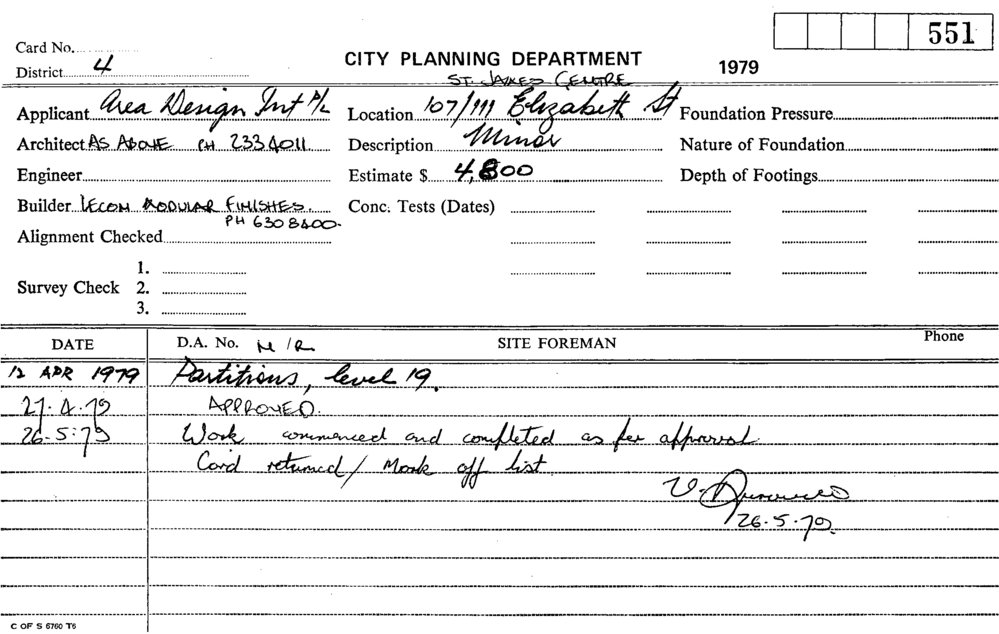 551
Card No.
CITY PLANNING DEPARTMENT
1979
District 4
ST. JAMES CENTRE
Applicant Area Design Int P/L
Location 107/111 Elizabeth St
Foundation Pressure
Architect AS ABOVE PH 233 4011
Description Minor
Nature of Foundation
Engineer
Estimate $ 4,800
Depth of Footings
Builder LECOM MODULAR FINISHES.
PH 630 8400.
Conc. Tests (Dates)
Alignment Checked
1.
Survey Check 2.
3.
DATE D.A. No. N/R SITE FOREMAN Phone
12 APR 1979 Partitions, level 19.
27.4.79 APPROVED.
26.5.79 Work commenced and completed as per approval.
Card returned / Mark off list
26.5.79
C OF S 6760 T6